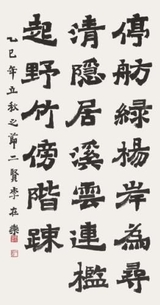 停舫緑楊岸為尋
清隱居溪雲連檻
起野竹傍階踈
乙巳年立秋之節二賢李在樂